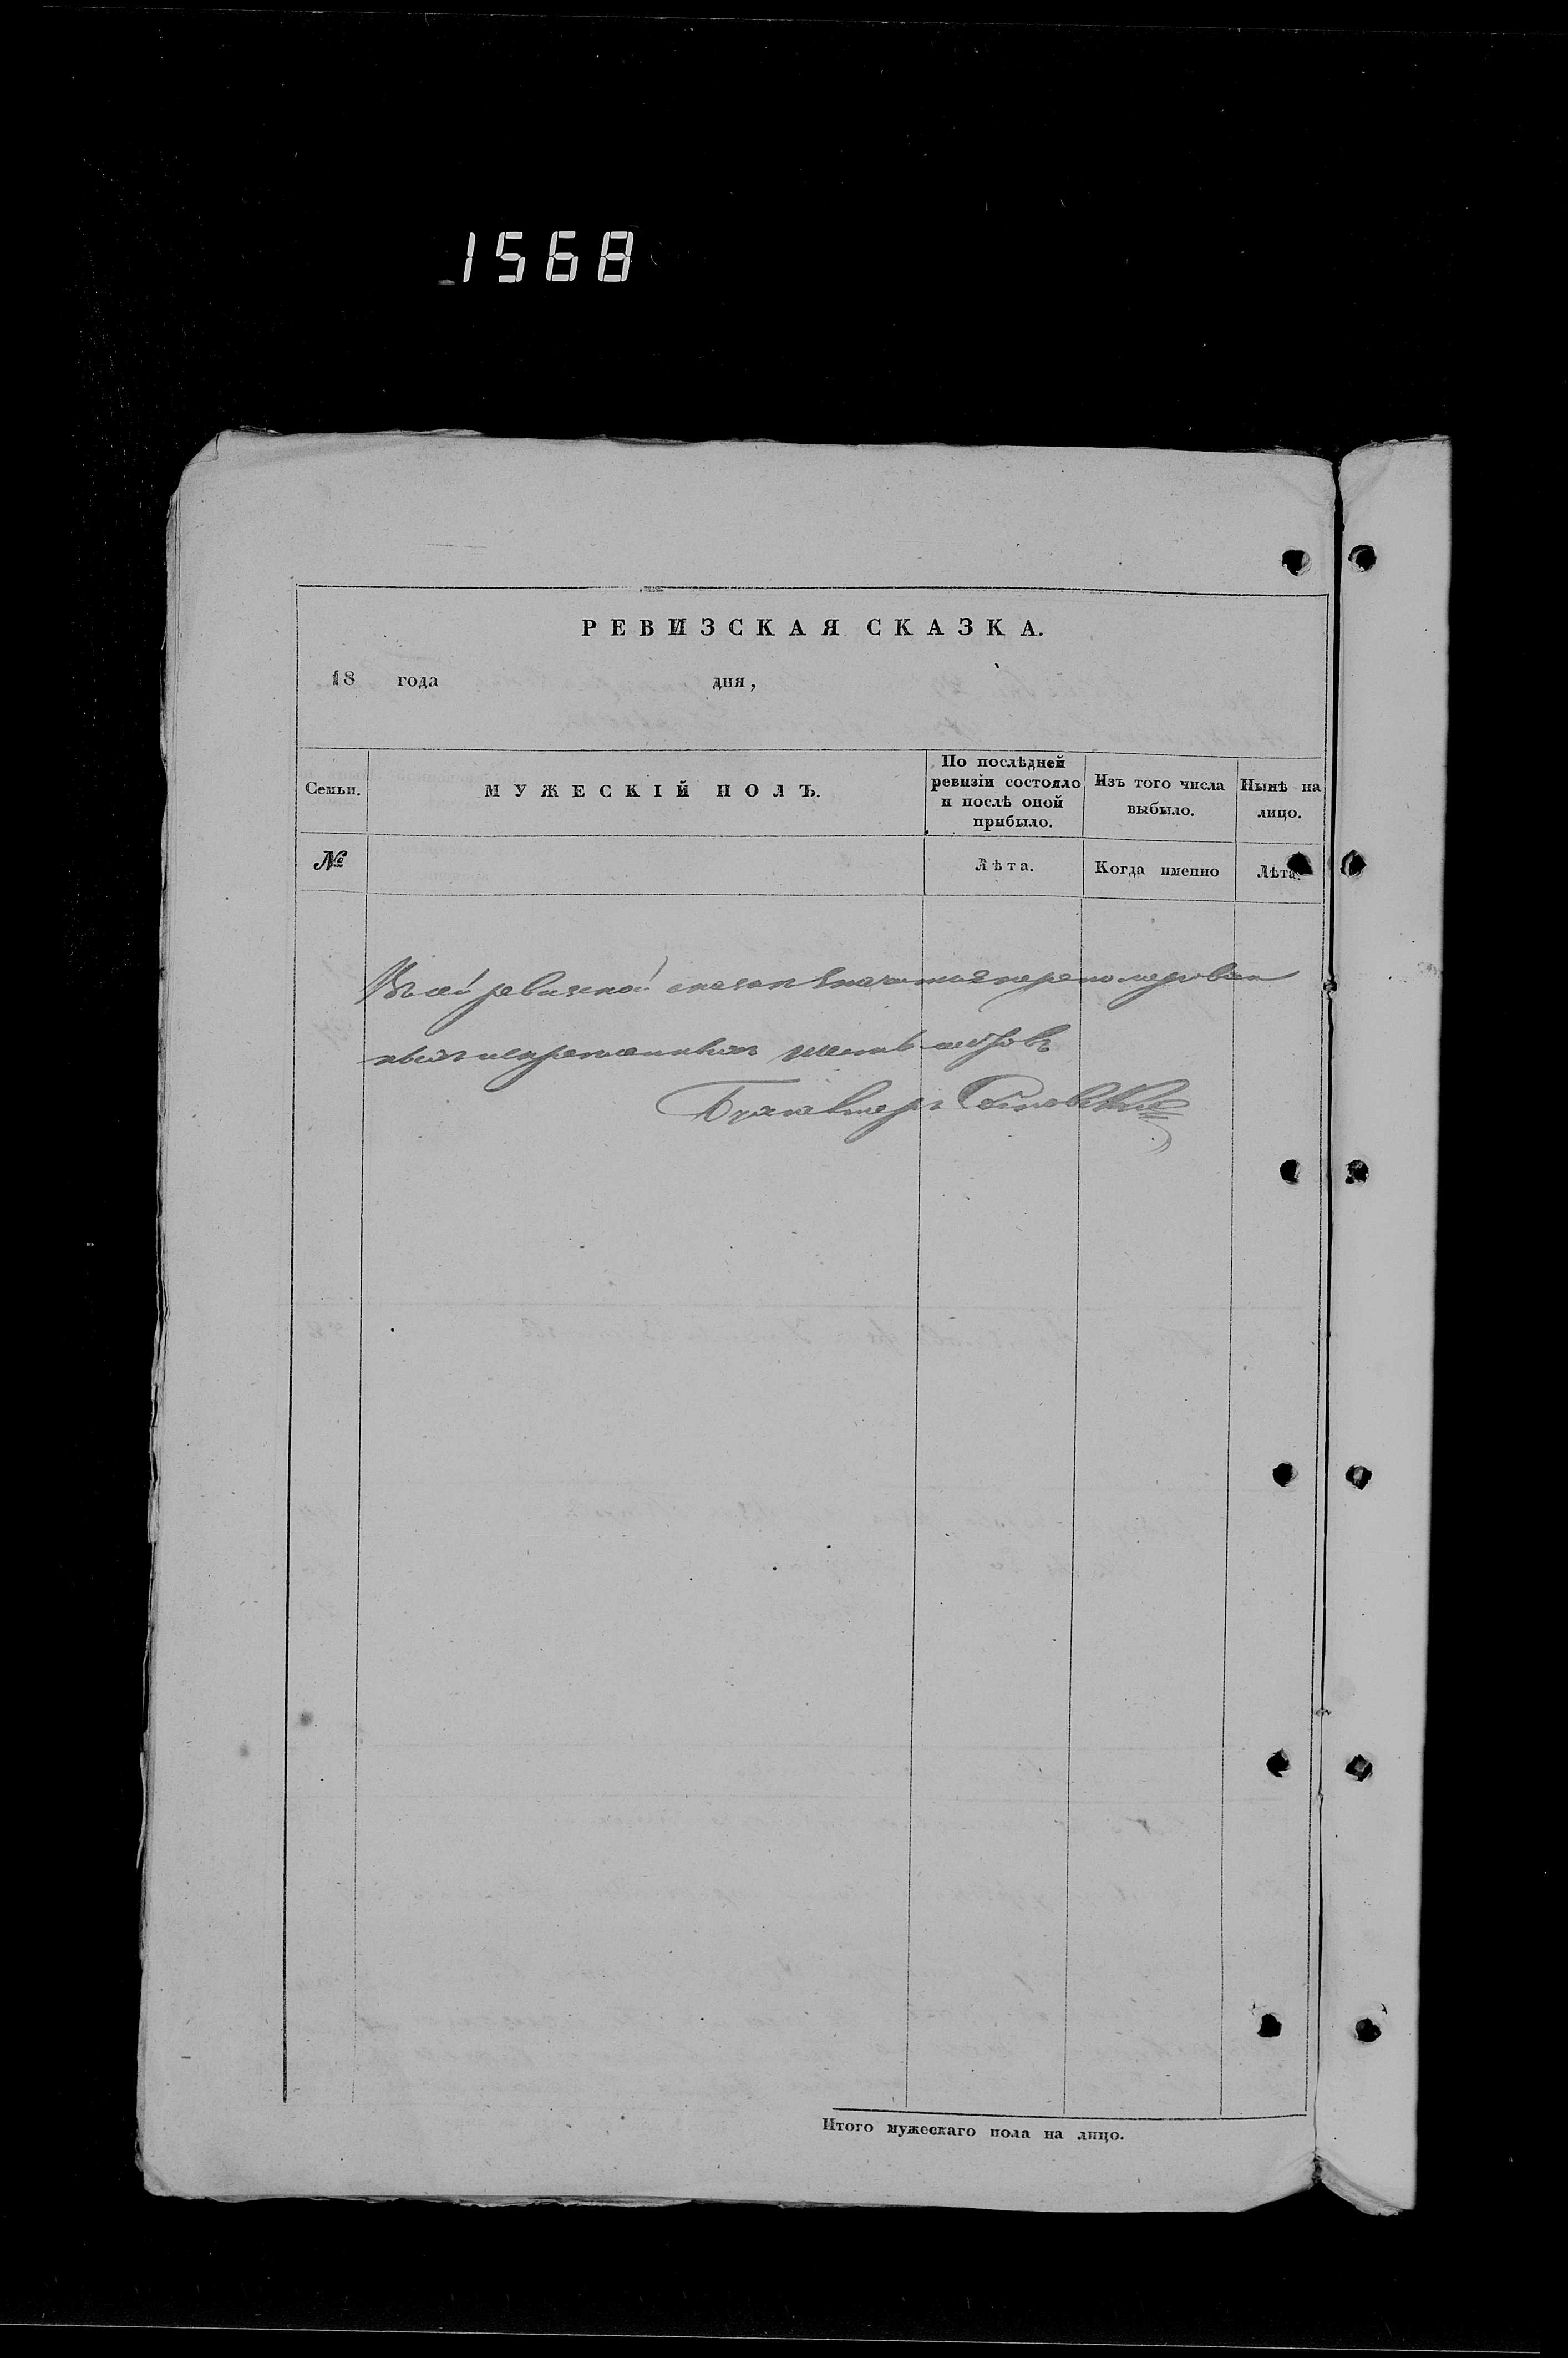 1568
РЕВИЗСКАЯ СКАЗКА.
18 года дня,
Семьи.
МУЖЕСКІЙ ПОЛЪ.
По послѣдней ревизіи состояло и послѣ оной прибыло.
Изъ того числа выбыло.
Нынѣ на лицо.
№
Лѣта.
Когда именно
Лѣта.
Въ сей ревизской сказкѣ значится перенумерован
ныхъ и скрепленныхъ шесть листовъ
Бухгалтеръ
Итого мужескаго пола на лицо.